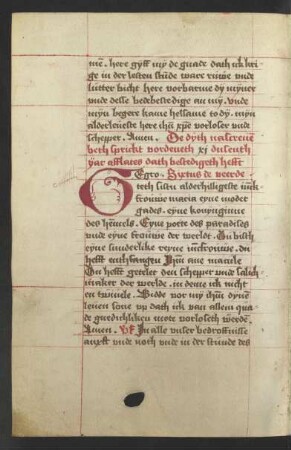 me. here gyff my de gnade dath ick kri
ge in der lesten stūde ware ruwe vnde
lutter bicht here vorbarme dy myner
vnde desse bedebestedige an my. vnde
myn begere kame hellsame to dy. myn
alderleueste here ihū xpē vorloser vnde
schepper. Amen. We dyth nascreuē
beth sprickt vordeneth xj dusenth
yar afflates dath bestedigeth hefft
Sixtus de veerde
Egro
teth sistu alderhilligeste iūck
frouwe maria eyne moder
gades. eyne konynginne
des hēmels. Eyne porte des paradises
vnde eyne frouwe der werlde. Du bist
eyne sunderlike reyne iunckrouwe. du
hefft enthfangen Jhm̄ ane mannle
Du hefft getelet den schepper vnde salich
maker der werlde. in deme ick nicht
en twiuele. Bidde vor my ihm̄ dynē
leuen sone vp dath ick van allem qua
de gnedichliken mote vorloseth werde.
Amen. In alle vnser bedroffnisse
anxst vnde noth vnde in der stunde des